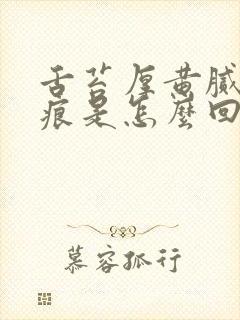 舌苔厚黄腻
痕是怎麼回
慕容孤行